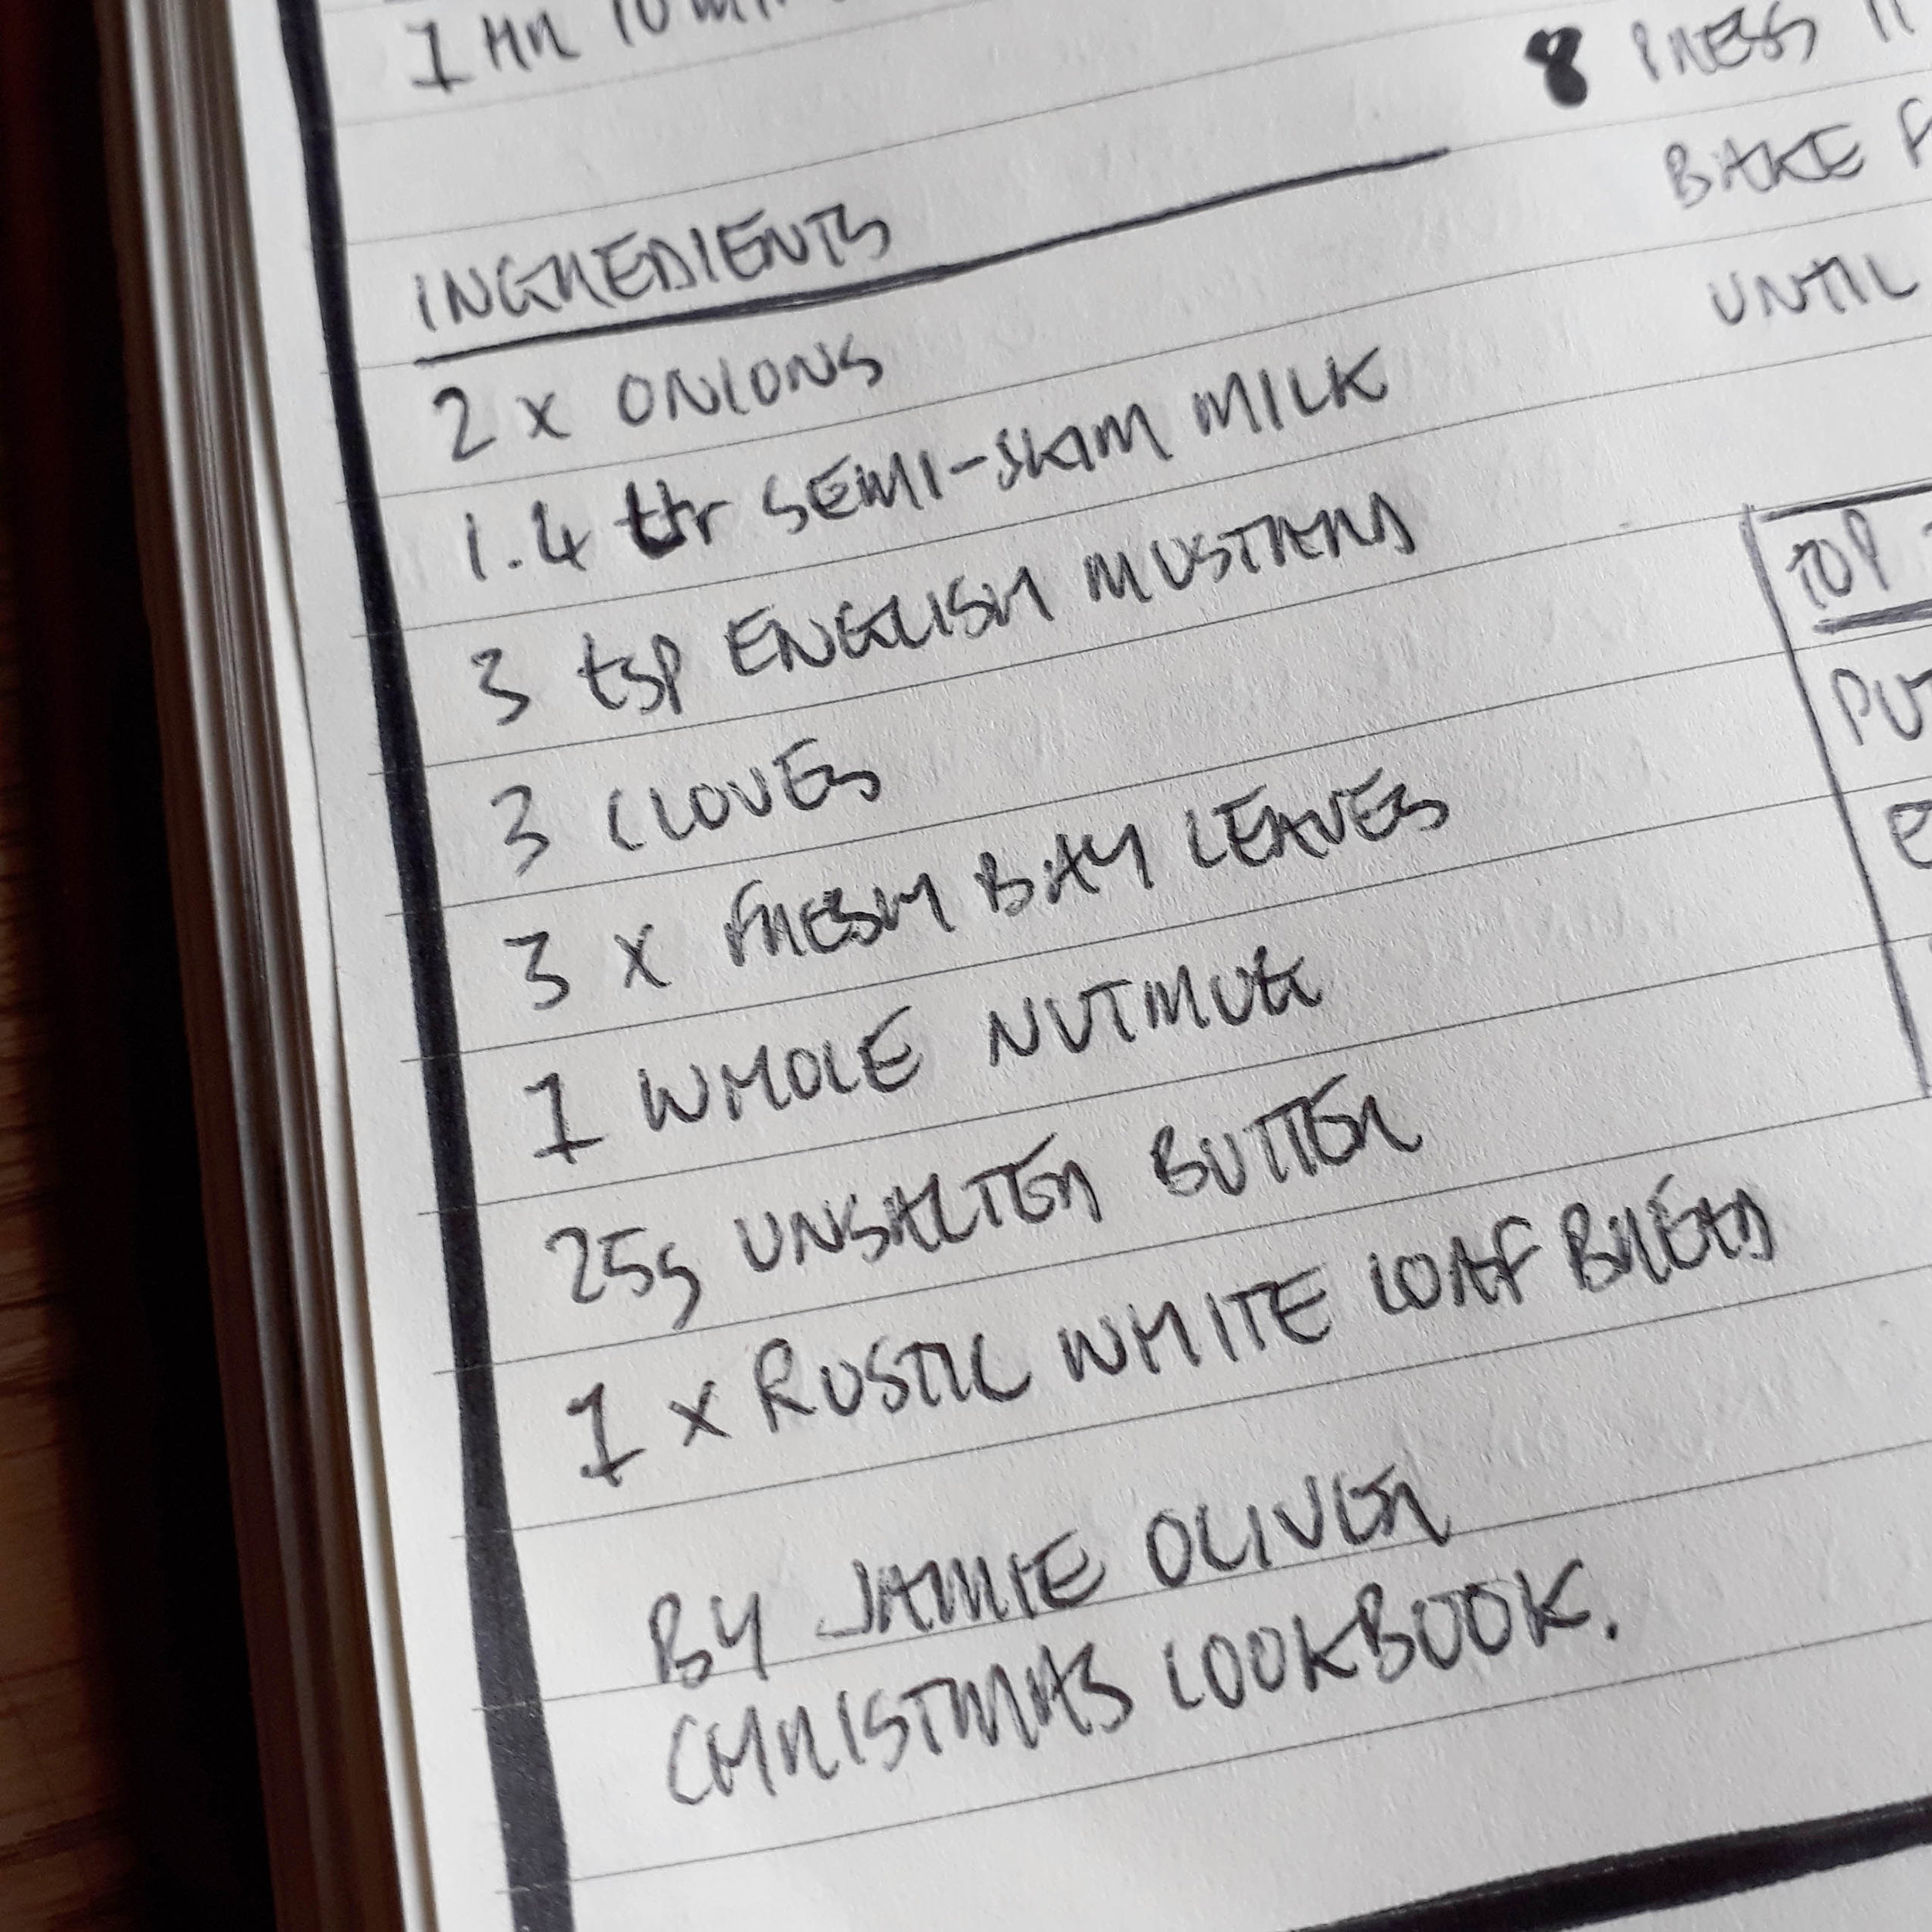 1 HR 10 MIN
INGREDIENTS
2 x ONIONS
1.4 ltr SEMI-SKIM MILK
3 tsp ENGLISH MUSTARD
3 CLOVES
3 x FRESH BAY LEAVES
1 WHOLE NUTMUG
25g UNSALTED BUTTER
1 x RUSTIC WHITE LOAF BREAD
BY JAMIE OLIVER
CHRISTMAS COOKBOOK.
8 PRESS
BAKE
UNTIL
TOP